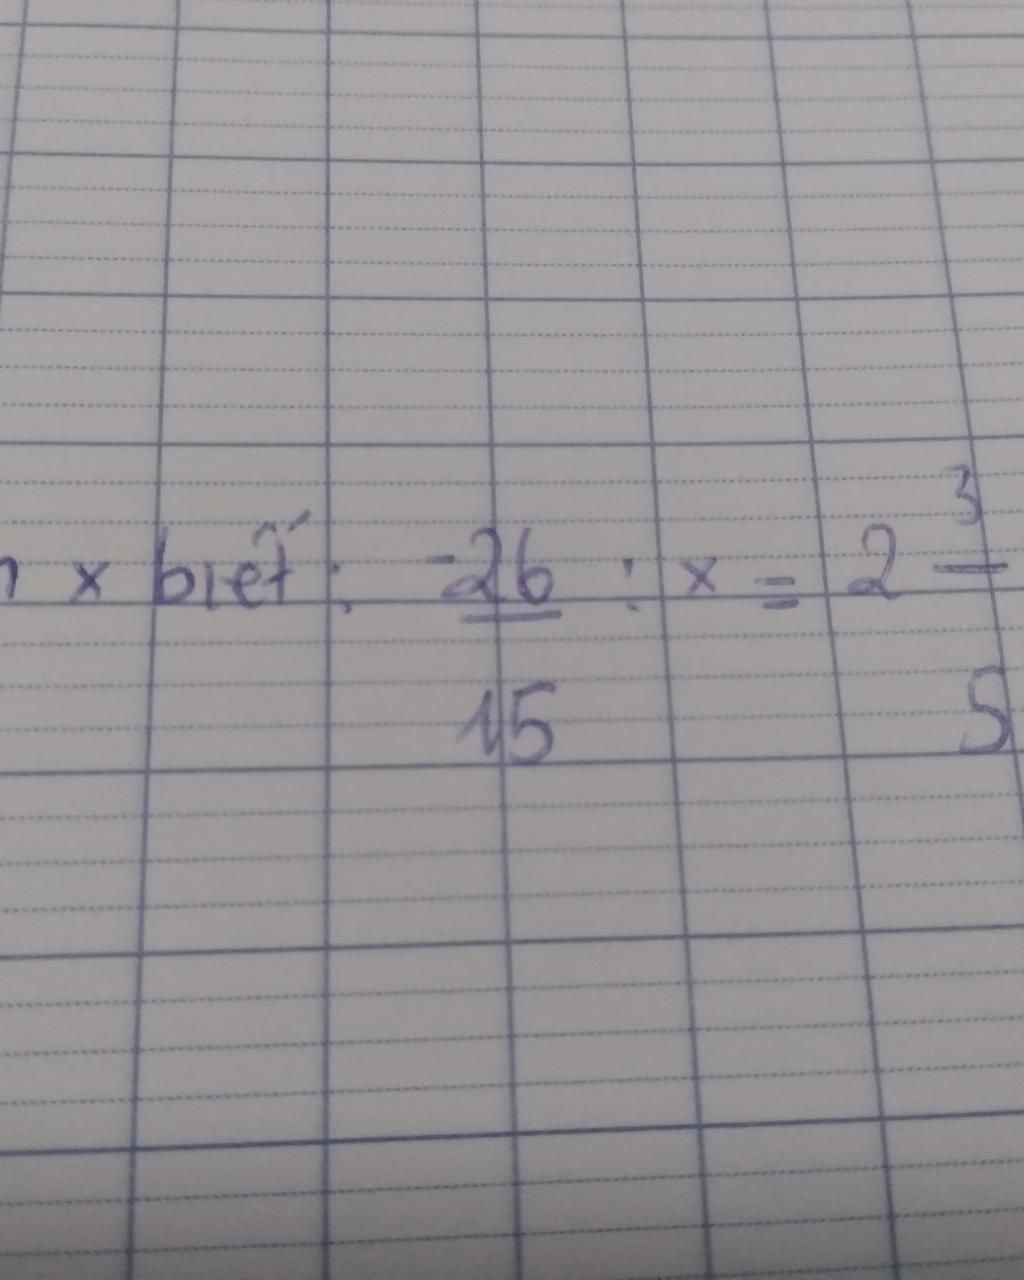 x biết : -26/15 : x = 2 3/5